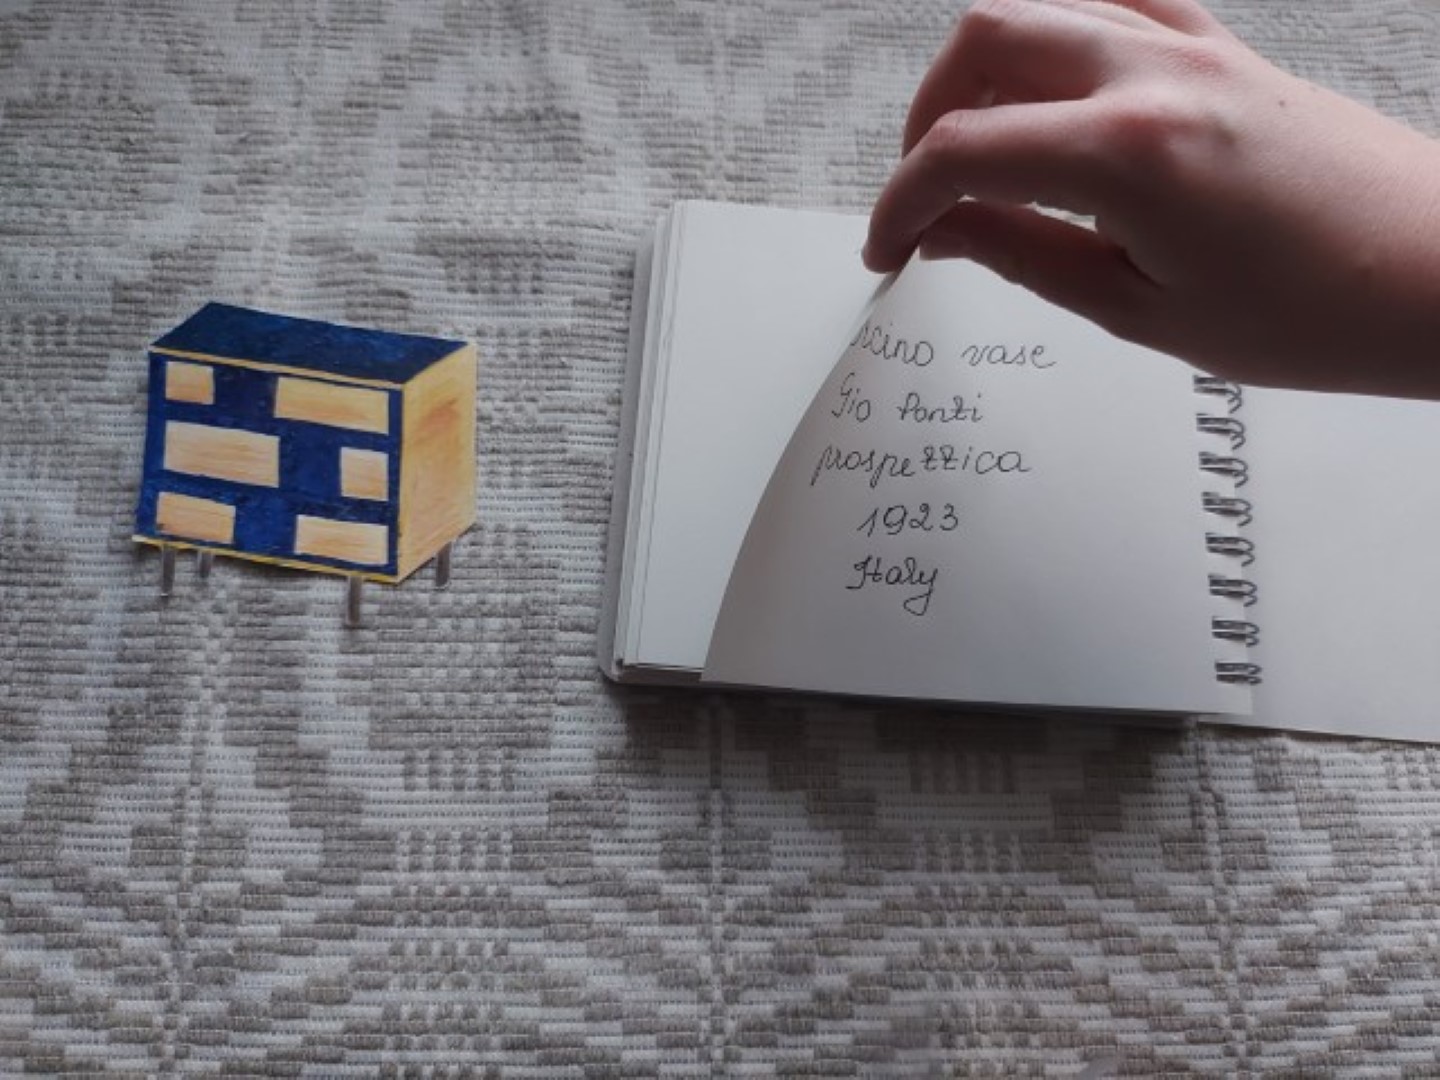 vase
Gio Ponti
prospezzica
1923
Italy